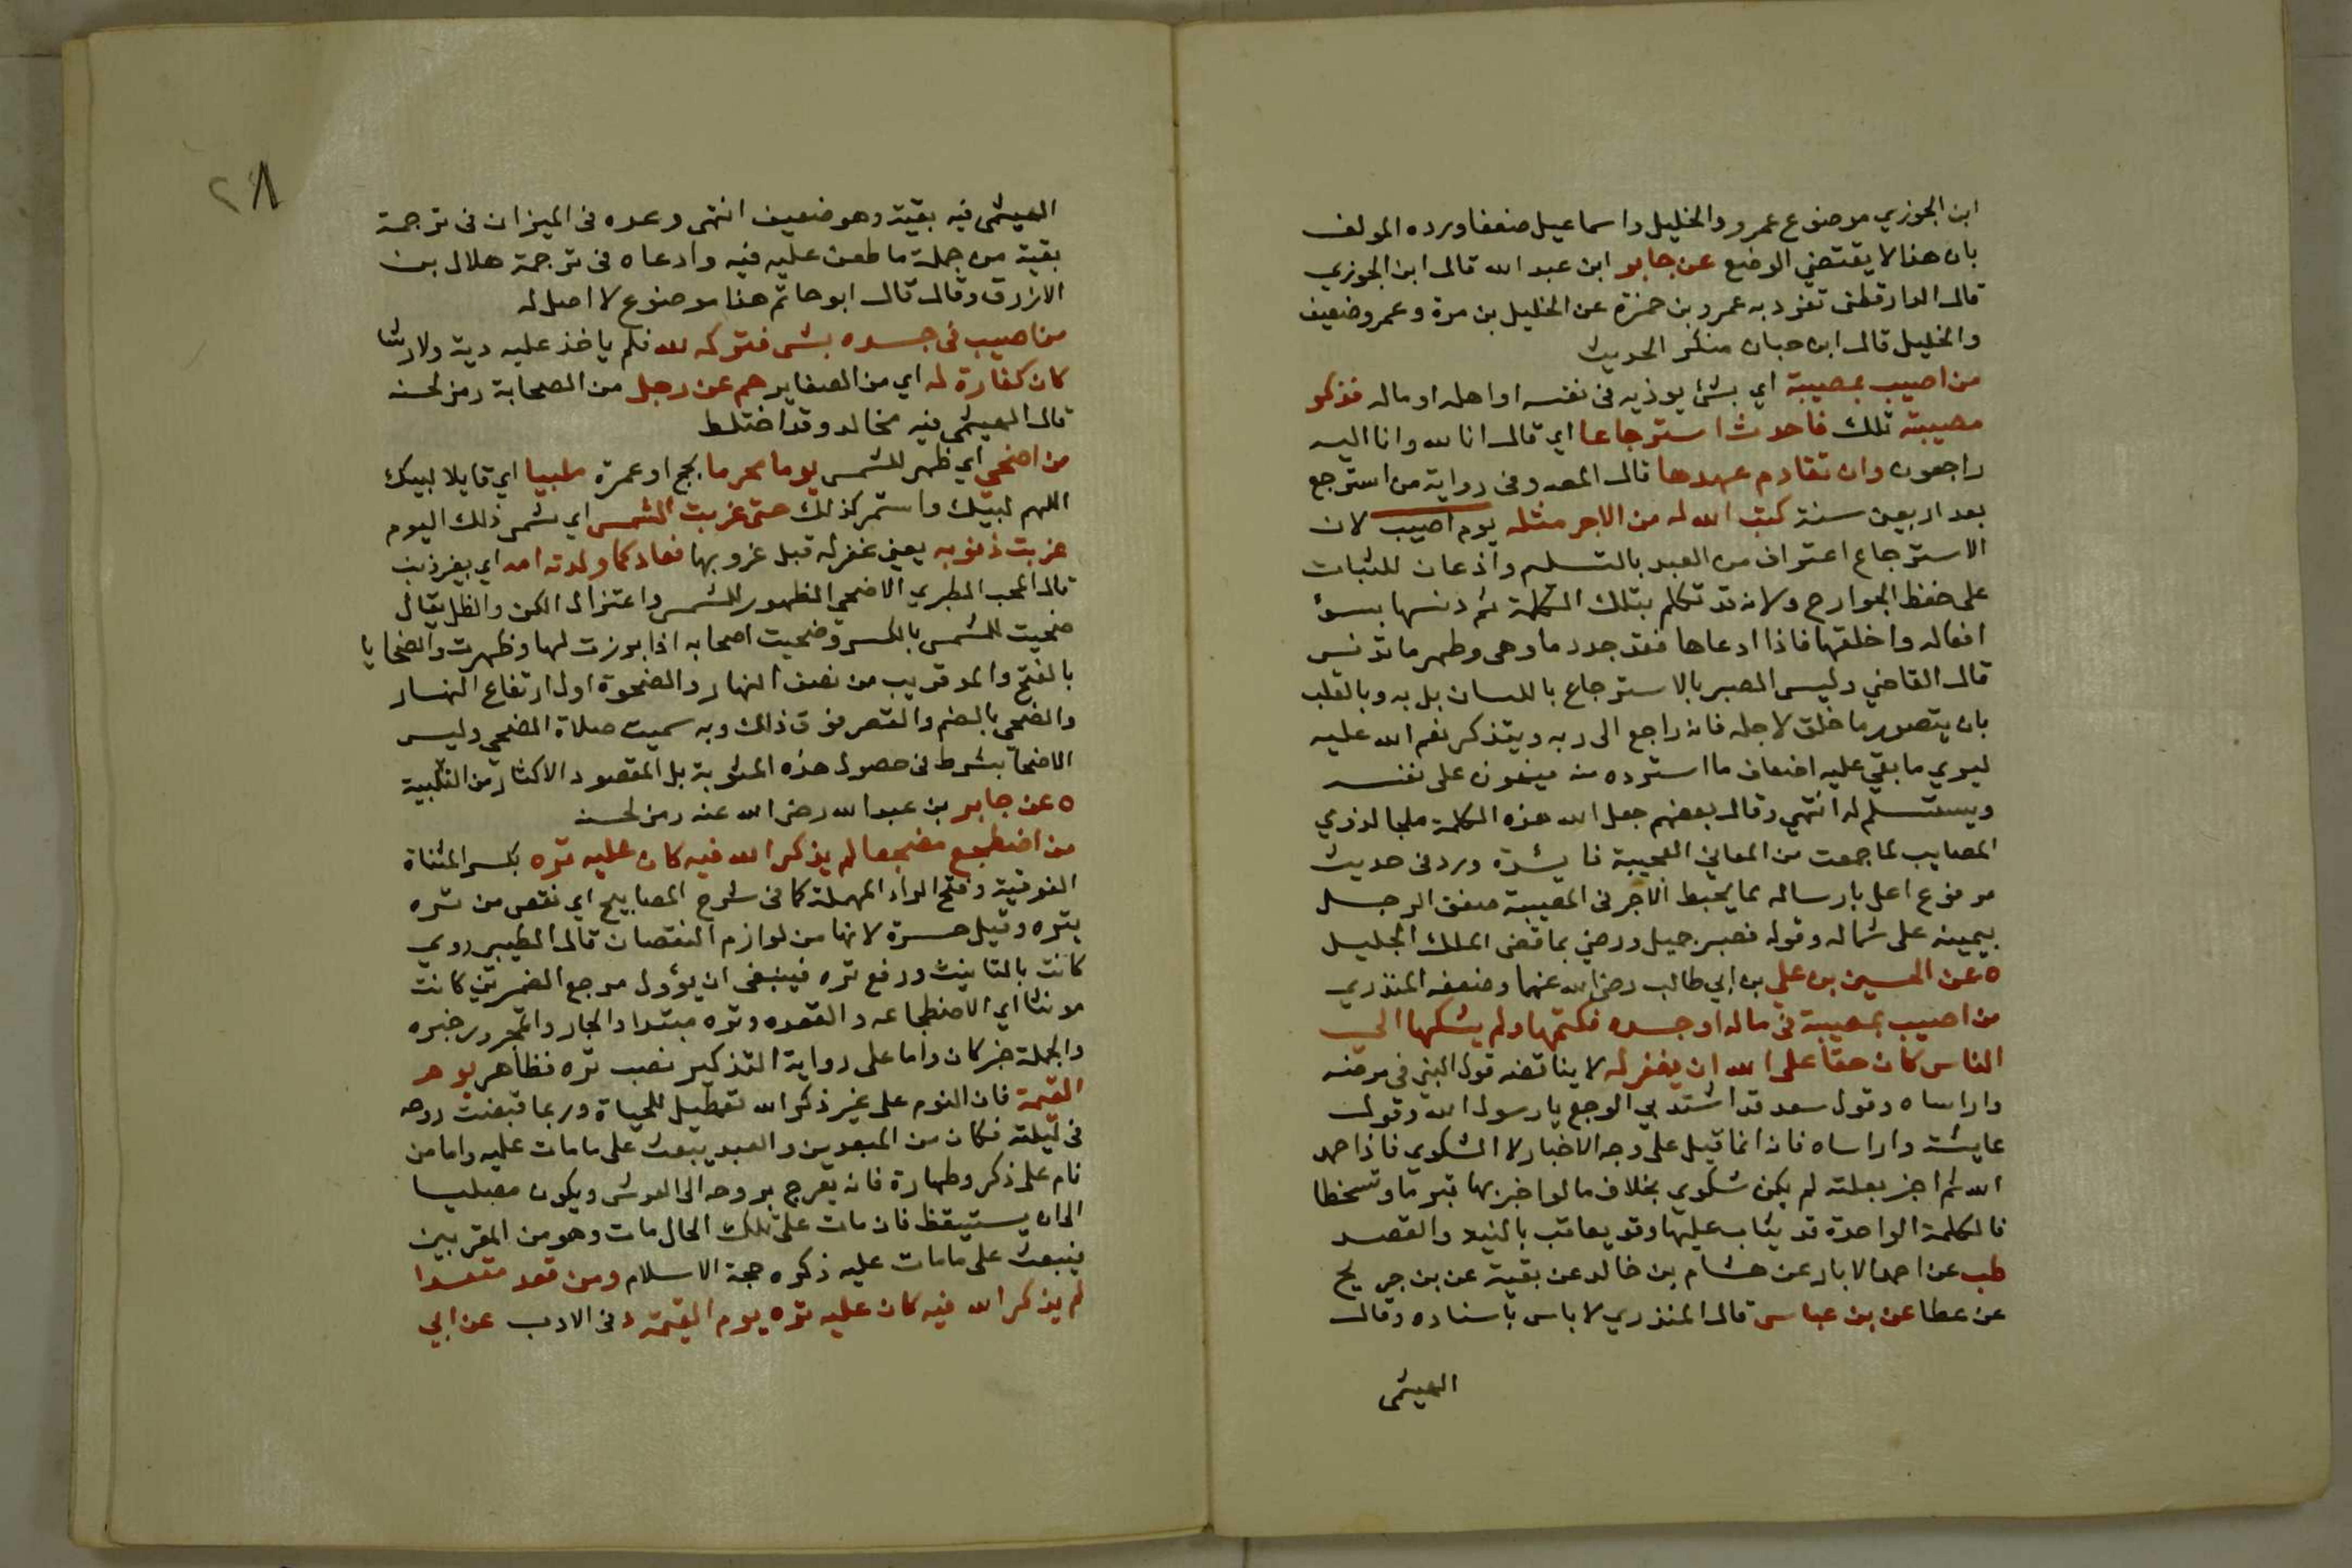 ابن الجوزي موضوع عمرو والخليل واسماعيل ضعفا ورده المولف
بان هذا لا يقتضي الوضع عن جابر ابن عبد الله قال ابن الجوزي
قال الدارقطنى تفرد به عمرو بن حمزة عن الخليل بن مرة وعمرو ضعيف
والخليل قال ابن حبان منكر الحديث
من اصيب بمصيبة اي بشئ يوذيه فى نفسه او اهله او ماله فذكر
مصيبته تلك فاحدث استرجاعا اي قال انا لله وانا اليه
راجعون وان تقادم عهدها قال المص وفى رواية من استرجع
بعد اربعين سنة كتب الله له من الاجر مثله يوم اصيب لان
الاسترجاع اعتراف من العبد بالتسلم واذعان للثبات
على حفظ الجوارح ولانه قد تكلم بتلك الكلمة ثم دنسها بسوٴ
افعاله واخلقها فاذا ادعاها فقد جدد ما وهى وطهر ما تدنس
قال القاضي وليس الصبر بالاسترجاع باللسان بل به وبالقلب
بان يتصور ما خلق لاجله فانه راجع الى ربه ويتذكر نعم الله عليه
ليري ما بقي عليه اضعاف ما استرده منه فيهون على نفسه
ويستسلم له انتهي وقال بعضهم جعل الله هذه الكلمة ملجا لذوي
المصايب لما جمعت من المعاني العجيبة فايدة ورد فى حديث
مرفوع اعل بارساله مما يحبط الاجر فى المصيبة صفق الرجل
بيمينه على شماله وقوله فصبر جميل ورضي بما قضى الملك الجليل
ه عن الحسين بن علي بن ابي طالب رضي الله عنهما وضعفه المنذري
من اصيب بمصيبة في ماله او جسده فكتمها ولم يشكها الي
الناس كان حقا على الله ان يغفر له لا يناقضه قول النبي في مرضه
واراساه وقول سعد قد اشتد بي الوجع يا رسول الله وقول
عايشة واراساه فانه انما قيل على وجه الاخبار لا الشكوي فاذا حمد
الله ثم اخبر بعلته لم يكن شكوي بخلاف ما لو اخبر بها تبرما وتسخطا
فالكلمة الواحدة قد يثاب عليها وقد يعاقب بالنية والقصد
طب عن احمد الابار عن هشام بن خالد عن بقية عن بن جريج
عن عطا عن بن عباس قال المنذري لا باس باسناده وقال
الهيثمى
٢٨
الهيثمى فيه بقية وهو ضعيف انتهى وعده فى الميزان فى ترجمة
بقية من جملة ما طعن عليه فيه وادعاه فى ترجمة هلال بن
الازرق وقال قال ابو حاتم هذا موضوع لا اصل له
من اصيب فى جسده بشى فتركه لله فلم ياخذ عليه دية ولا ارشا
كان كفارة له اي من الصغاير حم عن رجل من الصحابة رمز لحسنه
قال الهيثمي فيه مخالد وقد اختلط
من اضحي اي ظهر للشمس يوما محرما بحج او عمرة ملبيا اي قايلا لبيك
اللهم لبيك واستمر كذلك حتى غربت الشمس اي شمس ذلك اليوم
غربت ذنوبه يعني غفر له قبل غروبها فعاد كما ولدته امه اي بغير ذنب
قال المحب الطبري الاضحى الظهور للشمس واعتزال الكن والظل يقال
ضحيت للشمس بالكسر وضحيت اصحابه اذا برزت لها وظهرت والضحايا
بالفتح والمد قريب من نصف النهار والضحوة اول ارتفاع النهار
والضحى بالضم والقصر فوق ذلك وبه سميت صلاة الضحى وليس
الاضحا بشرط فى حصول هذه المثوبة بل المقصود الاكثار من التلبية
ه عن جابر بن عبد الله رضى الله عنه رمز لحسنه
من اضطجع مضجعا لم يذكر الله فيه كان عليه تره بكسر المثناة
الفوقية وفتح الراء المهملة كما فى شرح المصابيح اي نقص من تره
يتره وقيل حسرة لانها من لوازم النقصان قال الطيبي روي
كانت بالتانيث ورفع تره فينبغى ان يؤول مرجع الضمير في كانت
مونثا اي الاضطجاعه والقعده وتره مبتدا والجار والمجرور خبره
والجملة خبر كان واما على رواية التذكير نصب تره فظاهر يوم
القيمة فان النوم على غير ذكر الله تعطيل للحياة وربما قبضت روحه
فى ليلته فكان من المبعدين والعبد يبعث على ما مات عليه واما من
نام على ذكر وطهارة فانه يعرج بروحه الى العرش ويكون مصليا
الى ان يستيقظ فان مات على تلك الحال مات وهو من المقربين
فيبعث على ما مات عليه ذكره حجة الاسلام ومن قعد مقعدا
لم يذكر الله فيه كان عليه تره يوم القيمة د فى الادب عن ابي